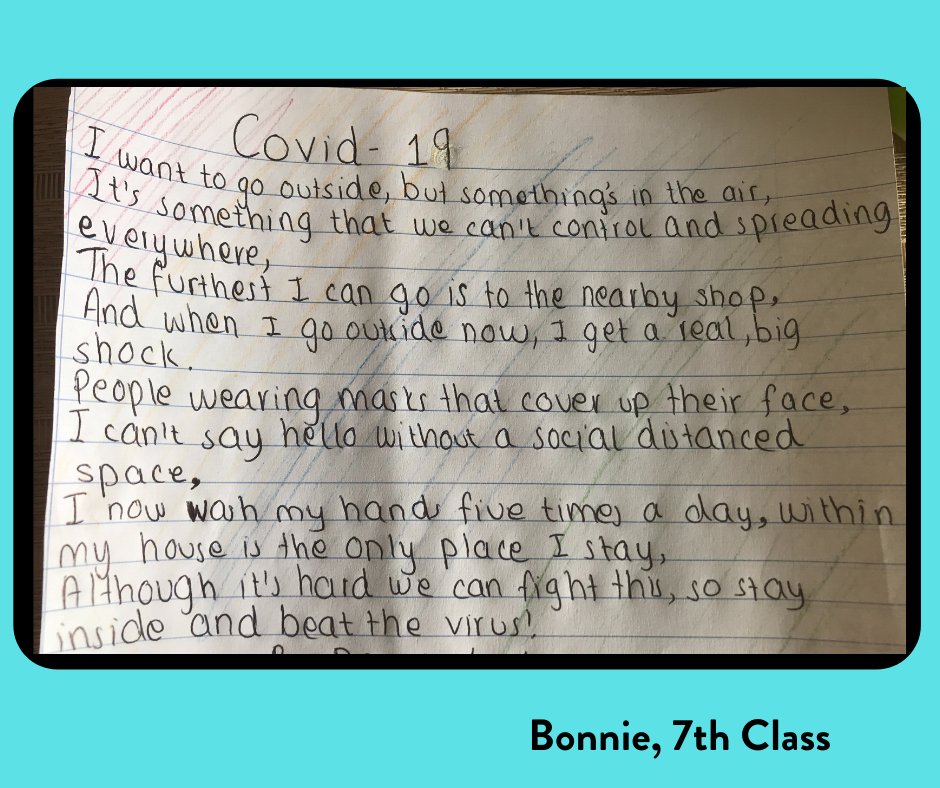 Covid-19
I want to go outside, but something's in the air,
It's something that we can't control and spreading
everywhere,
The furthest I can go is to the nearby shop,
And when I go outside now, I get a real, big
shock.
People wearing masks that cover up their face,
I can't say hello without a social distanced
space,
I now wash my hands five times a day, within
my house is the only place I stay,
Although it's hard we can fight this, so stay
inside and beat the virus!
Bonnie, 7th Class